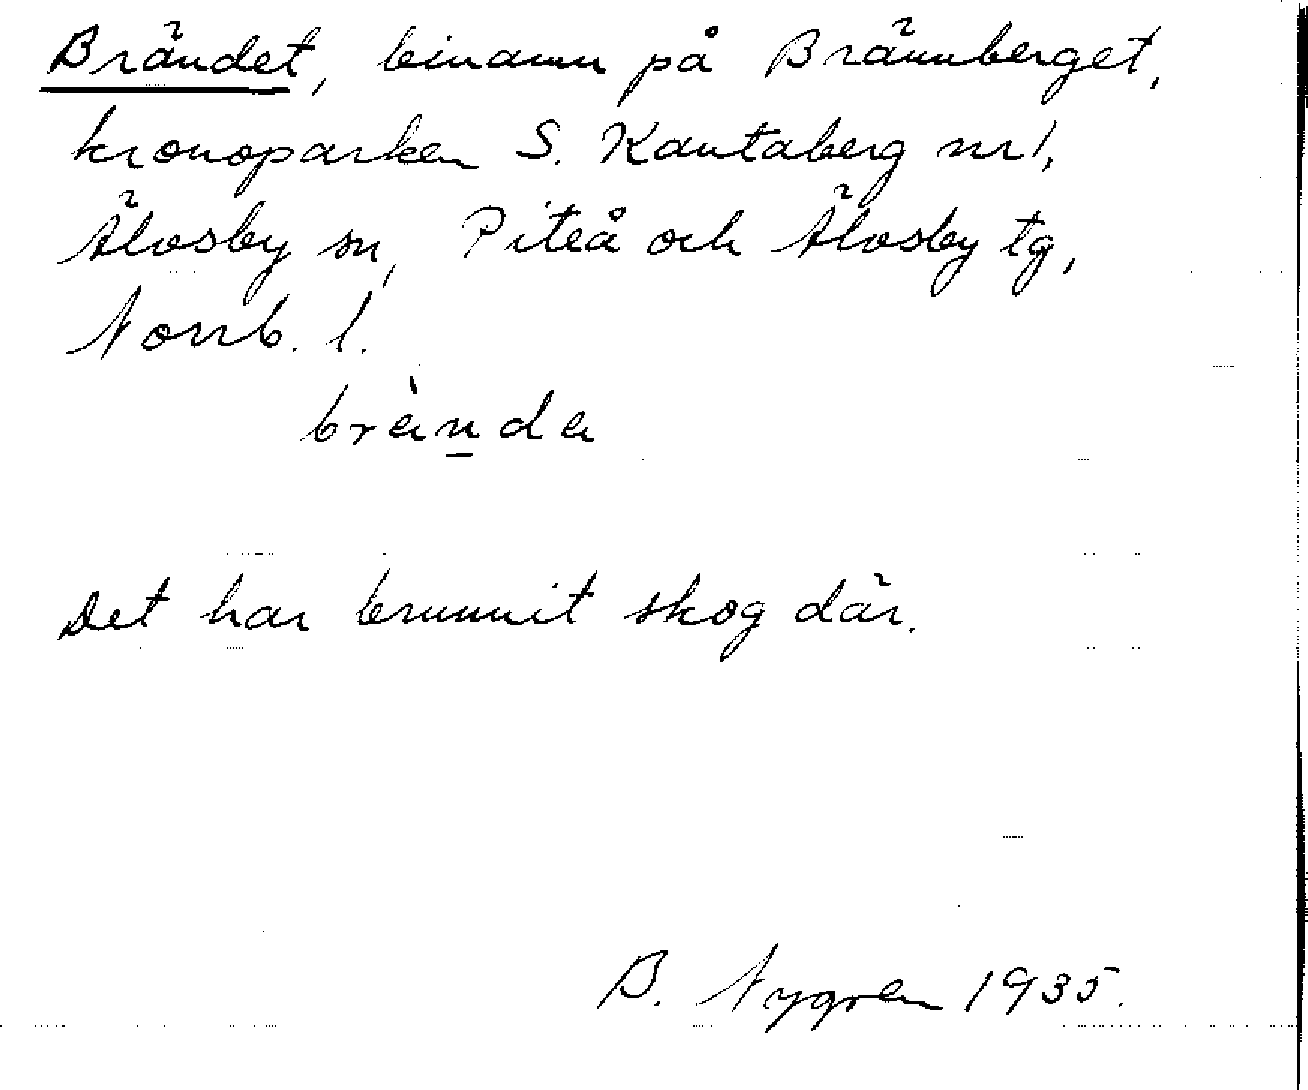 Brändet, binamn på Brännberget,
kronoparken S. Kantaberg nr 1,
Älvsby sn, Piteå och Älvsby tg,
Norrb. l.
brànda
Det har brunnit skog där.
B. Nygren 1935.